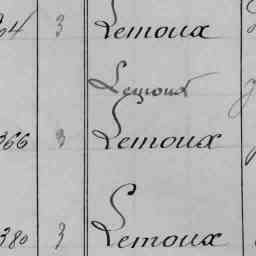 04 3 Lemoux
Lemoux
366 3 Lemoux
380 3 Lemoux